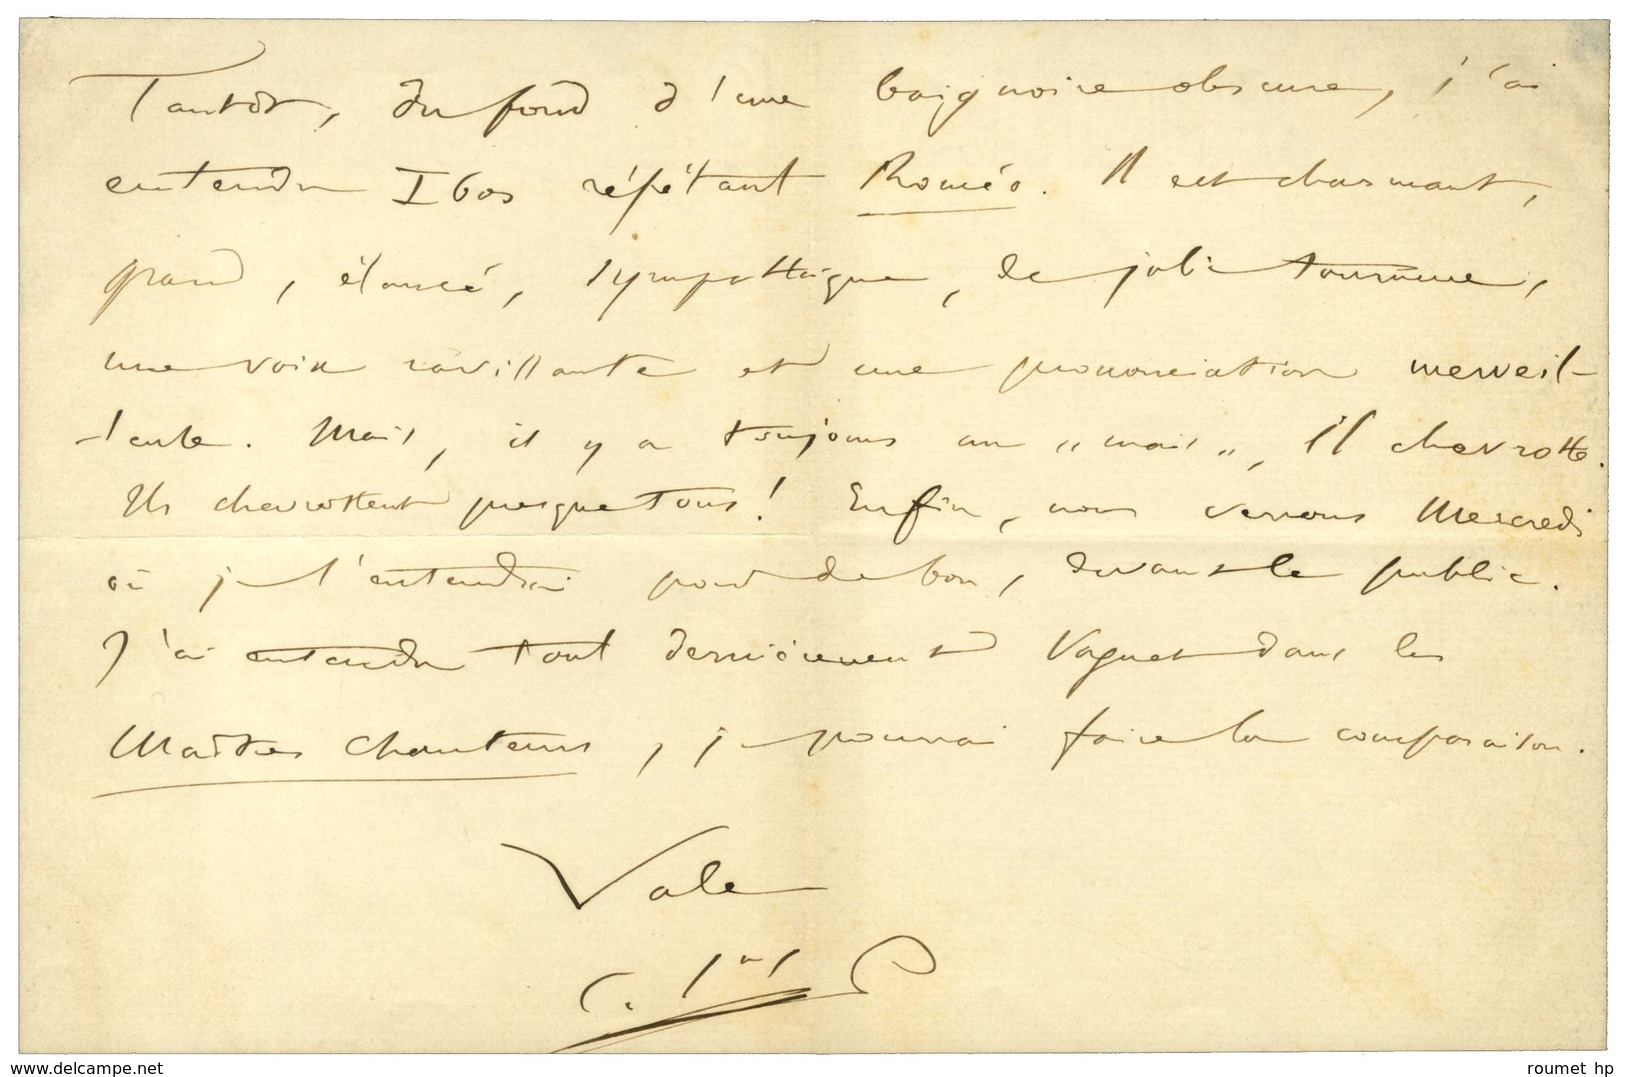 Tantôt, du fond d'une baignoire obscure, j'ai
entendu Ibos répétant Roméo. Il est charmant,
grand, élancé, sympathique, de jolie tournure,
une voix ravissante et une prononciation merveil-
-leuse. Mais, il y a toujours un "mais", il chevrotte.
Ils chevrottent presque tous! Enfin, nous verrons Mercredi
où je l'entendrai pour de bon, devant le public.
J'ai entendu tout dernièrement Vaguet dans les
Maîtres Chanteurs, je pourrai faire la comparaison.
Vale
C.
www.delcampe.net
roumet hp